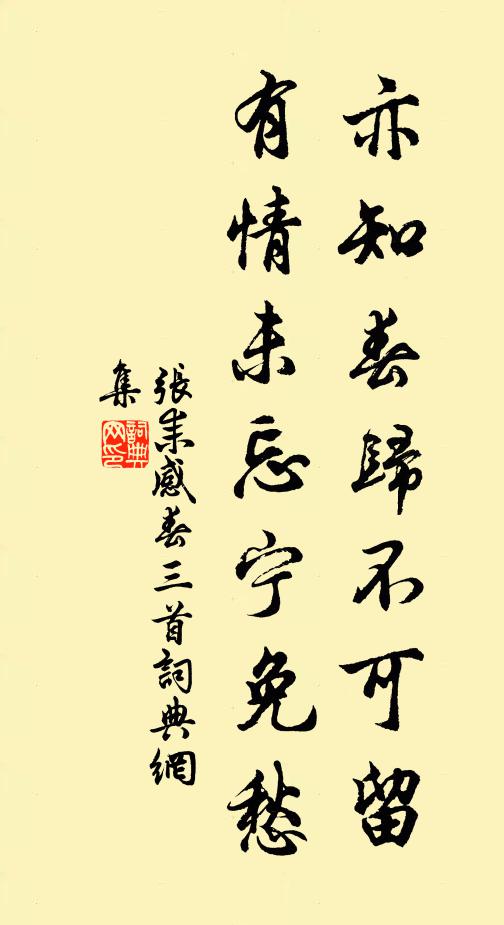 亦知春歸不可留
有情未忘宁免愁
張耒感春三首詞典網
集
詞典
网印